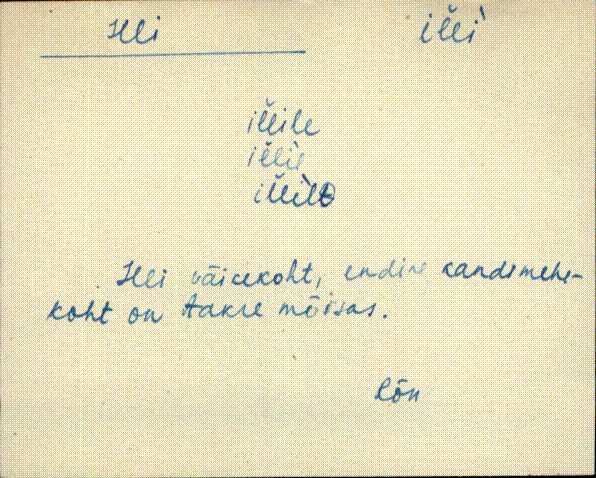 Illi illì
illile
illiì
illilt
Illi väikekoht, endine sandimehe-
koht on Aakre mõisas.
Rõn